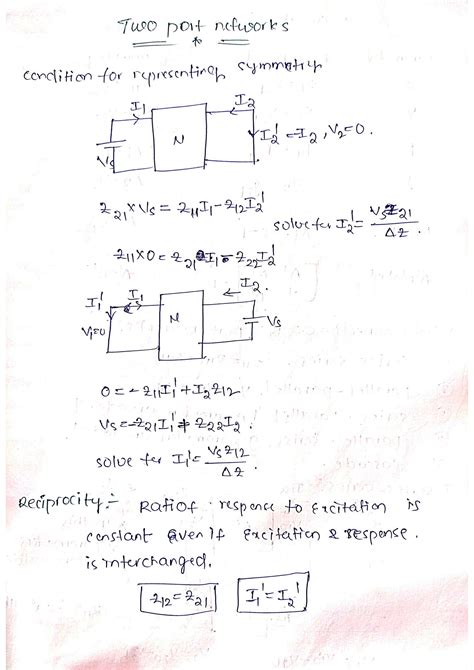 Two port networks
condition for representing symmetry
I1
I2
N
I2' = -I2, V2=0.
Vs
Z21 × Vs = Z11I1 - Z12I2'
solve for I2' = VsZ21 / ΔZ.
Z11×0 = Z21I1 - Z22I2'
I1'
I1
I2.
V1=0
N
Vs
0 = -Z11I1' + I2Z12
Vs = -Z21I1' + Z22I2.
solve for I1' = VsZ12 / ΔZ.
Reciprocity:- Ratio of response to Excitation is
constant even if Excitation & response.
is interchanged.
Z12 = Z21
I1' = I2'